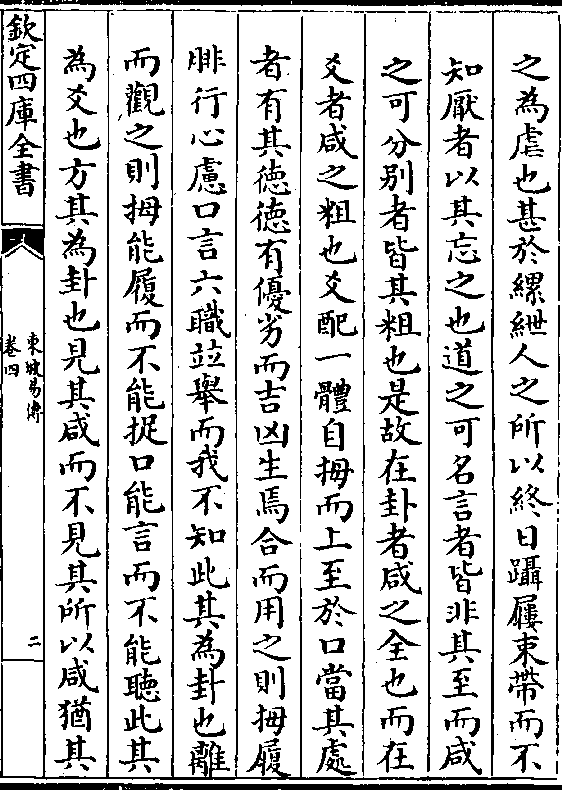 之為虐也甚於縲紲人之所以終日躡屨束帶而不
知厭者以其忘之也道之可名言者皆非其至而咸
之可分别者皆其粗也是故在卦者咸之全也而在
爻者咸之粗也爻配一體自拇而上至於口當其處
者有其徳徳有優劣而吉凶生焉合而用之則拇履
腓行心慮口言六職並舉而我不知此其為卦也離
而觀之則拇能履而不能捉口能言而不能聽此其
為爻也方其為卦也見其咸而不見其所以咸猶其
欽定四庫全書
東坡易傳
卷四
二